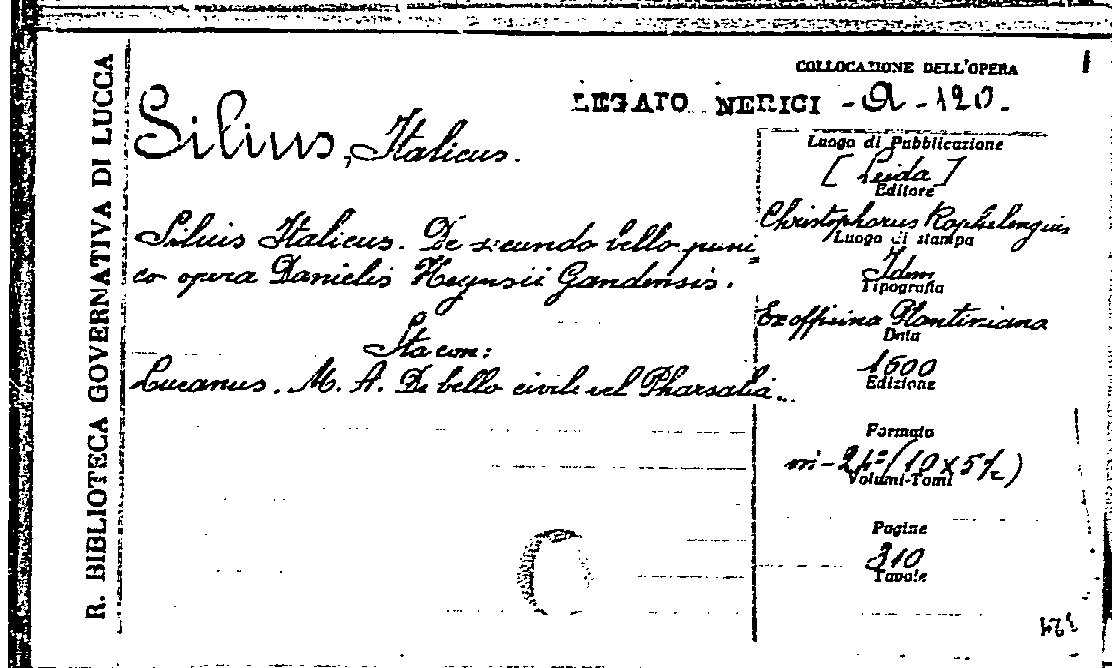 R. BIBLIOTECA GOVERNATIVA DI LUCCA
COLLOCAZIONE DELL'OPERA
LEGATO NERICI - A - 120.
Silius, Italicus.
Silius Italicus. De secundo bello puni=
co opera Danielis Heynsii Gandensis.
Sta con:
Lucanus. M. A. De bello civile vel Pharsalia..
Luogo di Pubblicazione
[Leida]
Editore
Christophorus Raphelengius
Luogo di stampa
Idem
Tipografia
Ex officina Plantiniana
Data
1600
Edizione
Formato
in-24º (10 x 5½)
Volumi-Tomi
Pagine
310
Tavole